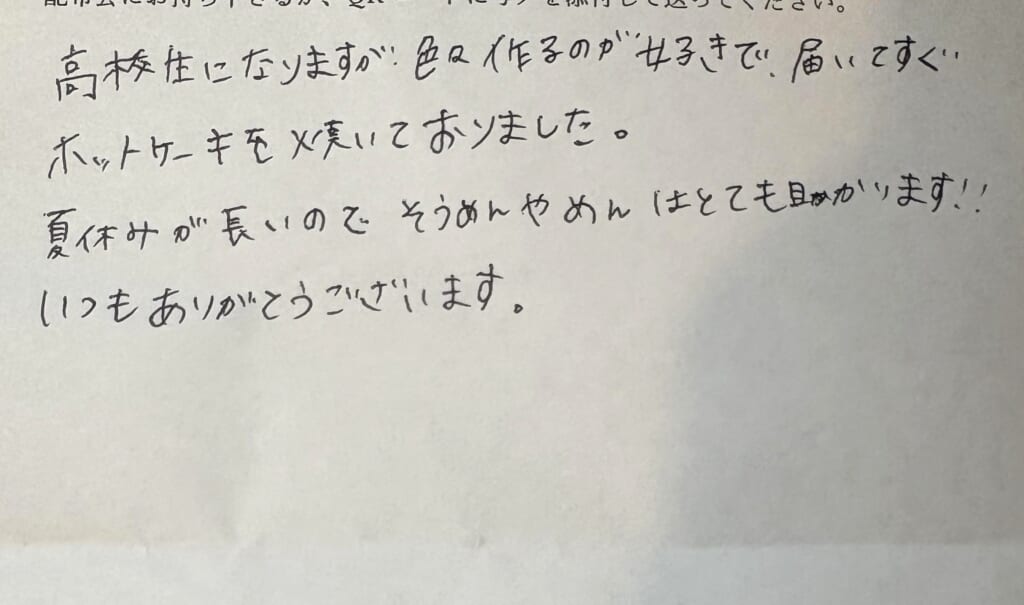 高校生になりますが色々作るのが好きで、届いてすぐ
ホットケーキを焼いておりました。
夏休みが長いので そうめんやめんはとても助かります!!
いつもありがとうございます。